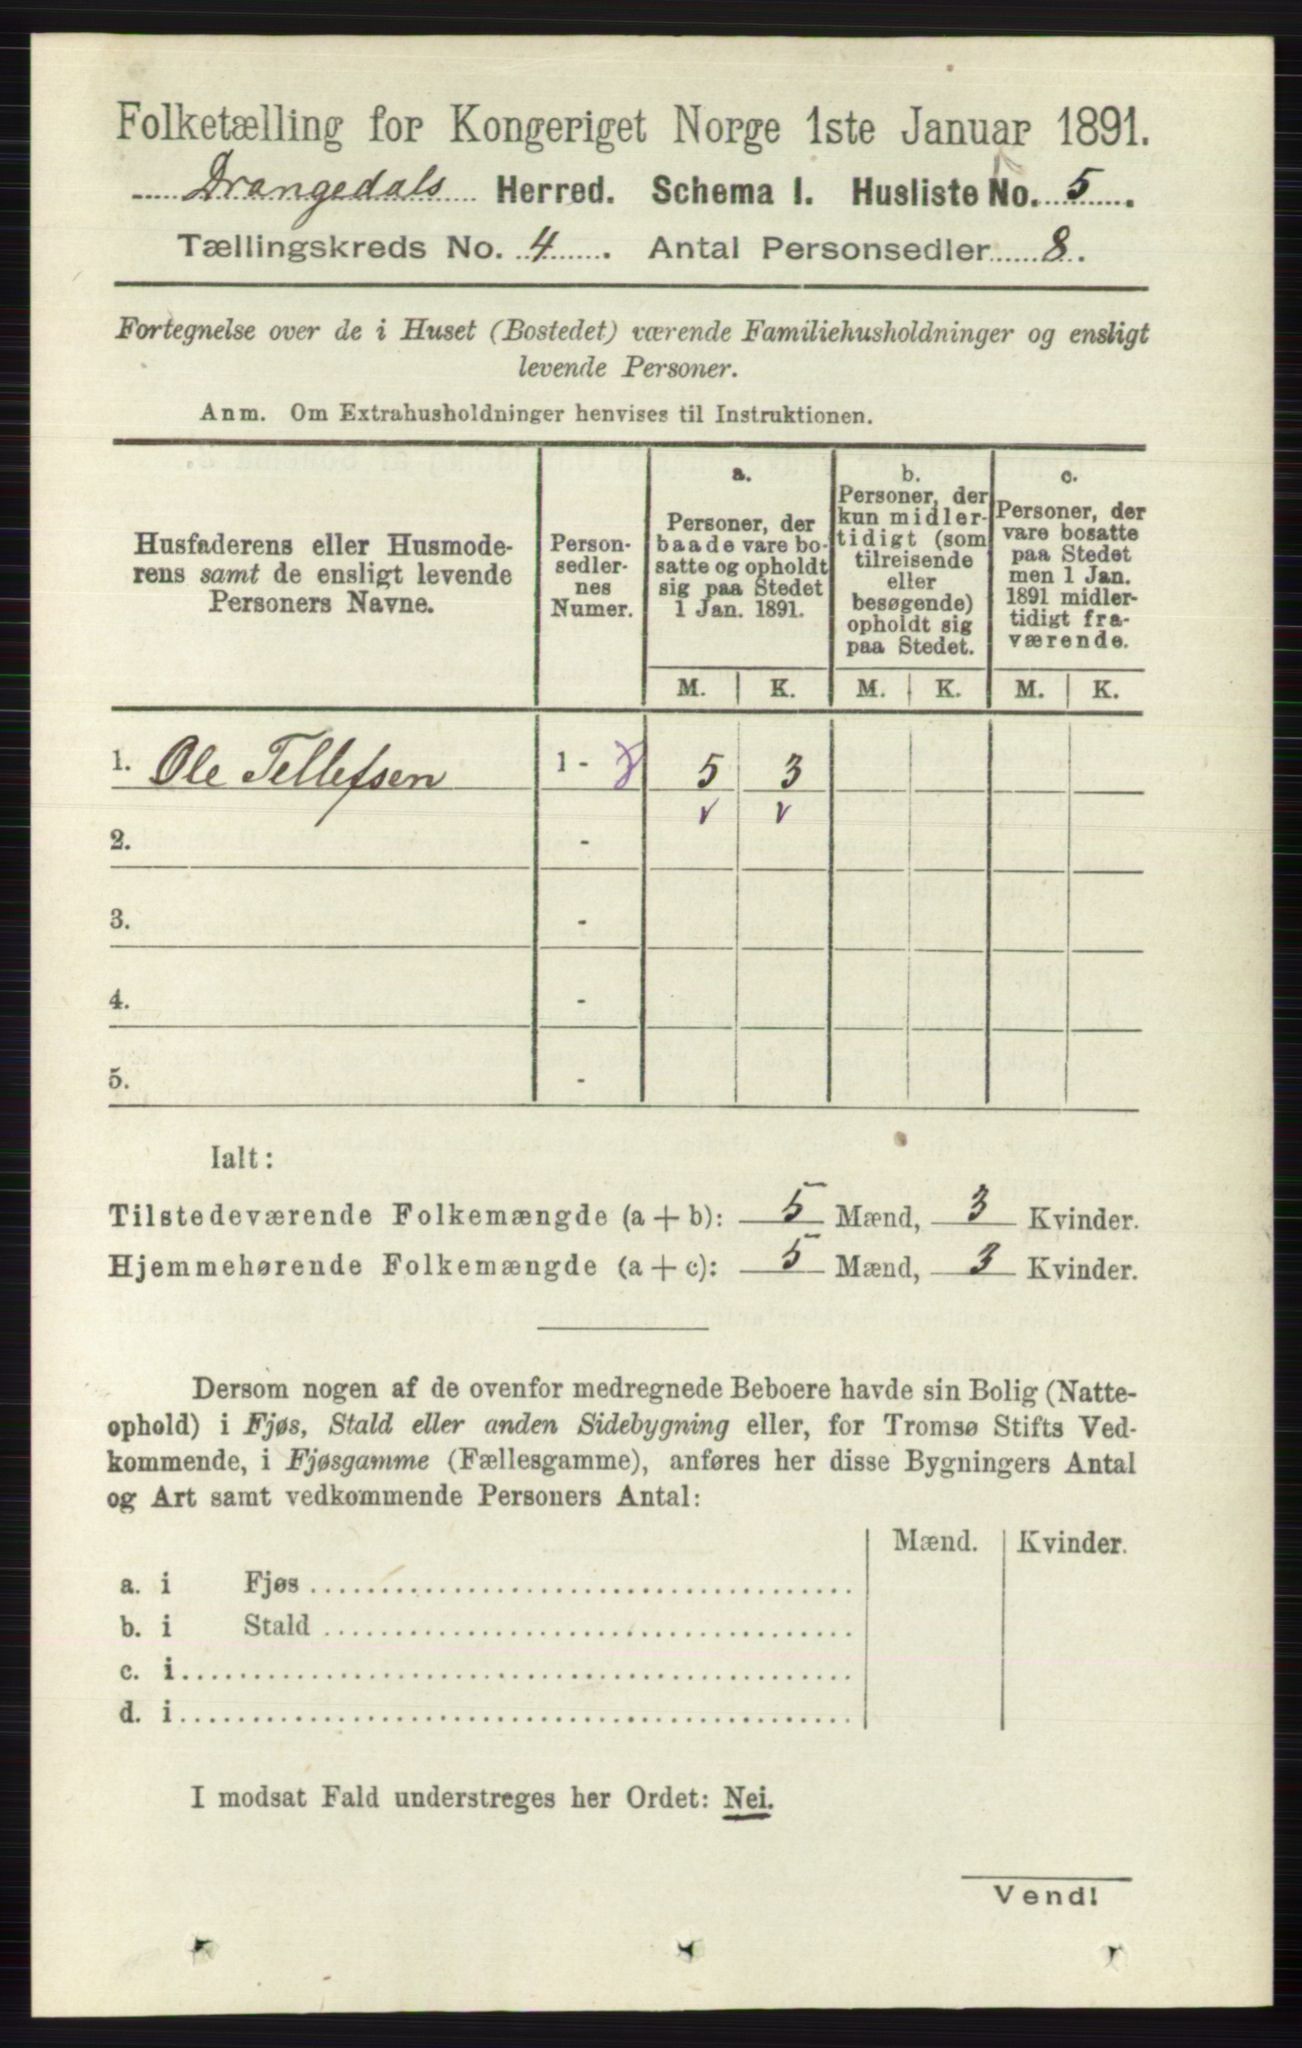 Folketælling for Kongeriget Norge 1ste Januar 1891.
Drangedals Herred. Schema I. Husliste No. 5.
Tællingskreds No. 4. Antal Personsedler 8.
Fortegnelse over de i Huset (Bostedet) værende Familiehusholdninger og ensligt
levende Personer.
Anm. Om Extrahusholdninger henvises til Instruktionen.
Husfaderens eller Husmode-
rens samt de ensligt levende
Personers Navne.
Person-
sedler-
nes
Numer.
a.
Personer, der
baade vare bo-
satte og opholdt
sig paa Stedet
1 Jan. 1891.
b.
Personer, der
kun midler-
tidigt (som
tilreisende
eller
besøgende)
opholdt sig
paa Stedet.
c.
Personer, der
vare bosatte
paa Stedet
men 1 Jan.
1891 midler-
tidigt fra-
værende.
M. K. M. K. M. K.
1. Ole Tellefsen 1 - 8 5 3
2. -
3. -
4. -
5. -
Ialt:
Tilstedeværende Folkemængde (a + b): 5 Mænd, 3 Kvinder.
Hjemmehørende Folkemængde (a + c): 5 Mænd, 3 Kvinder.
Dersom nogen af de ovenfor medregnede Beboere havde sin Bolig (Natte-
ophold) i Fjøs, Stald eller anden Sidebygning eller, for Tromsø Stifts Ved-
kommende, i Fjøsgamme (Fællesgamme), anføres her disse Bygningers Antal
og Art samt vedkommende Personers Antal:
Mænd. Kvinder.
a. i Fjøs
b. i Stald
c. i
d. i
I modsat Fald understreges her Ordet: Nei.
Vend!